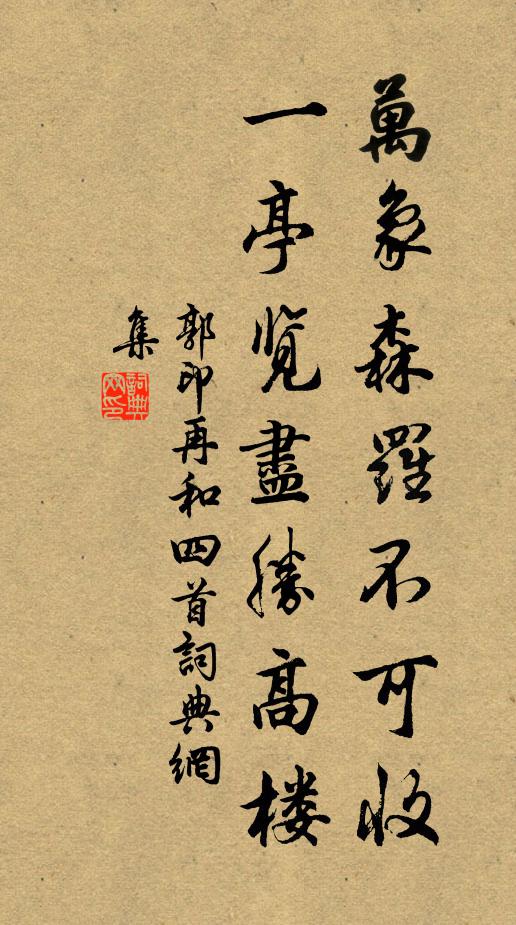 萬象森羅不可收
一亭览盡勝高楼
郭印再和四首詞典網
集
詞典網印